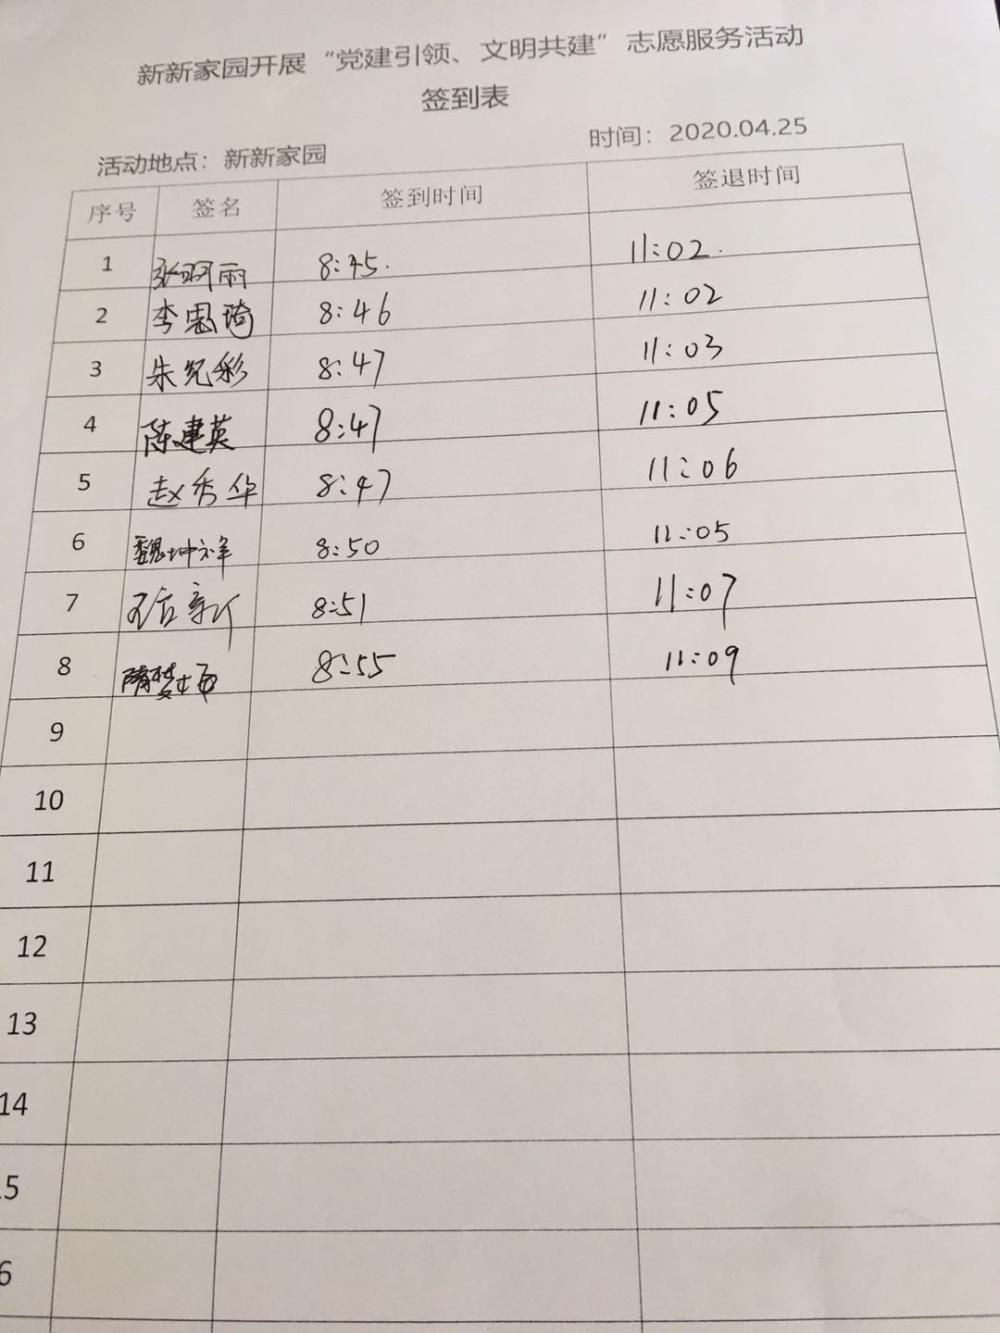 新新家园开展“党建引领、文明共建”志愿服务活动
签到表
活动地点：新新家园 时间：2020.04.25
序号 签名 签到时间 签退时间
1 8:45. 11:02.
2 李思琦 8:46 11:02
3 朱纪彩 8:47 11:03
4 陈建英 8:47 11:05
5 赵秀华 8:47 11:06
6 魏坤祥 8:50 11:05
7 8:51 11:07
8 8:55 11:09
9
10
11
12
13
14
15
6